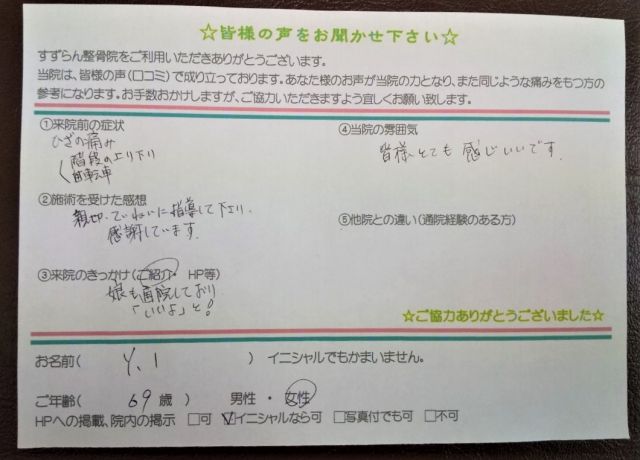 ☆皆様の声をお聞かせ下さい☆
すずらん整骨院をご利用いただきありがとうございます。
当院は、皆様の声(口コミ)で成り立っております。あなた様のお声が当院の力となり、また同じような痛みをもつ方の
参考になります。お手数おかけしますが、ご協力いただきますよう宜しくお願い致します。
①来院前の症状
ひざの痛み
階段の上り下り
自転車
②施術を受けた感想
親切、ていねいに指導して下さり、
感謝しています。
③来院のきっかけ(ご紹介・HP等)
娘も通院しており
「いいよ」と!
④当院の雰囲気
皆様とても感じいいです。
⑤他院との違い(通院経験のある方)
☆ご協力ありがとうございました☆
お名前( Y. I )イニシャルでもかまいません。
ご年齢( 69 歳 ) 男性・女性
HPへの掲載、院内の掲示 □可 ☑イニシャルなら可 □写真付でも可 □不可